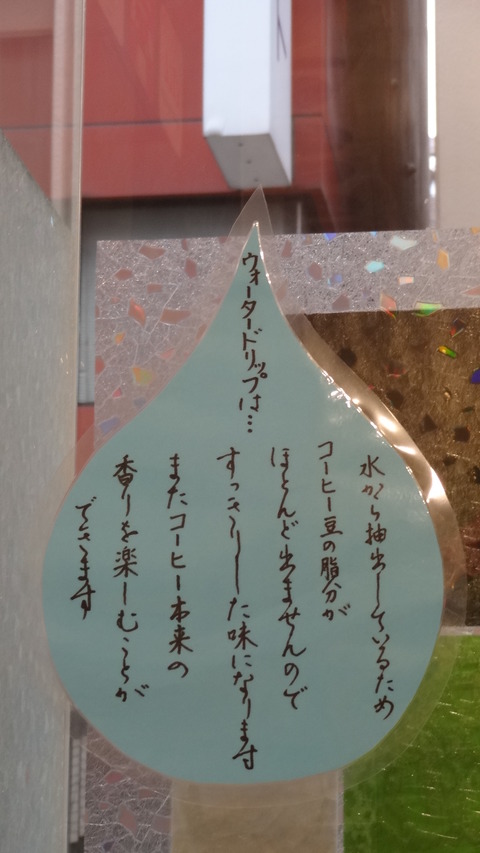 ウォータードリップは…
水から抽出しているため
コーヒー豆の脂分が
ほとんど出ませんので
すっきりした味になります
またコーヒー本来の
香りを楽しむことが
できます